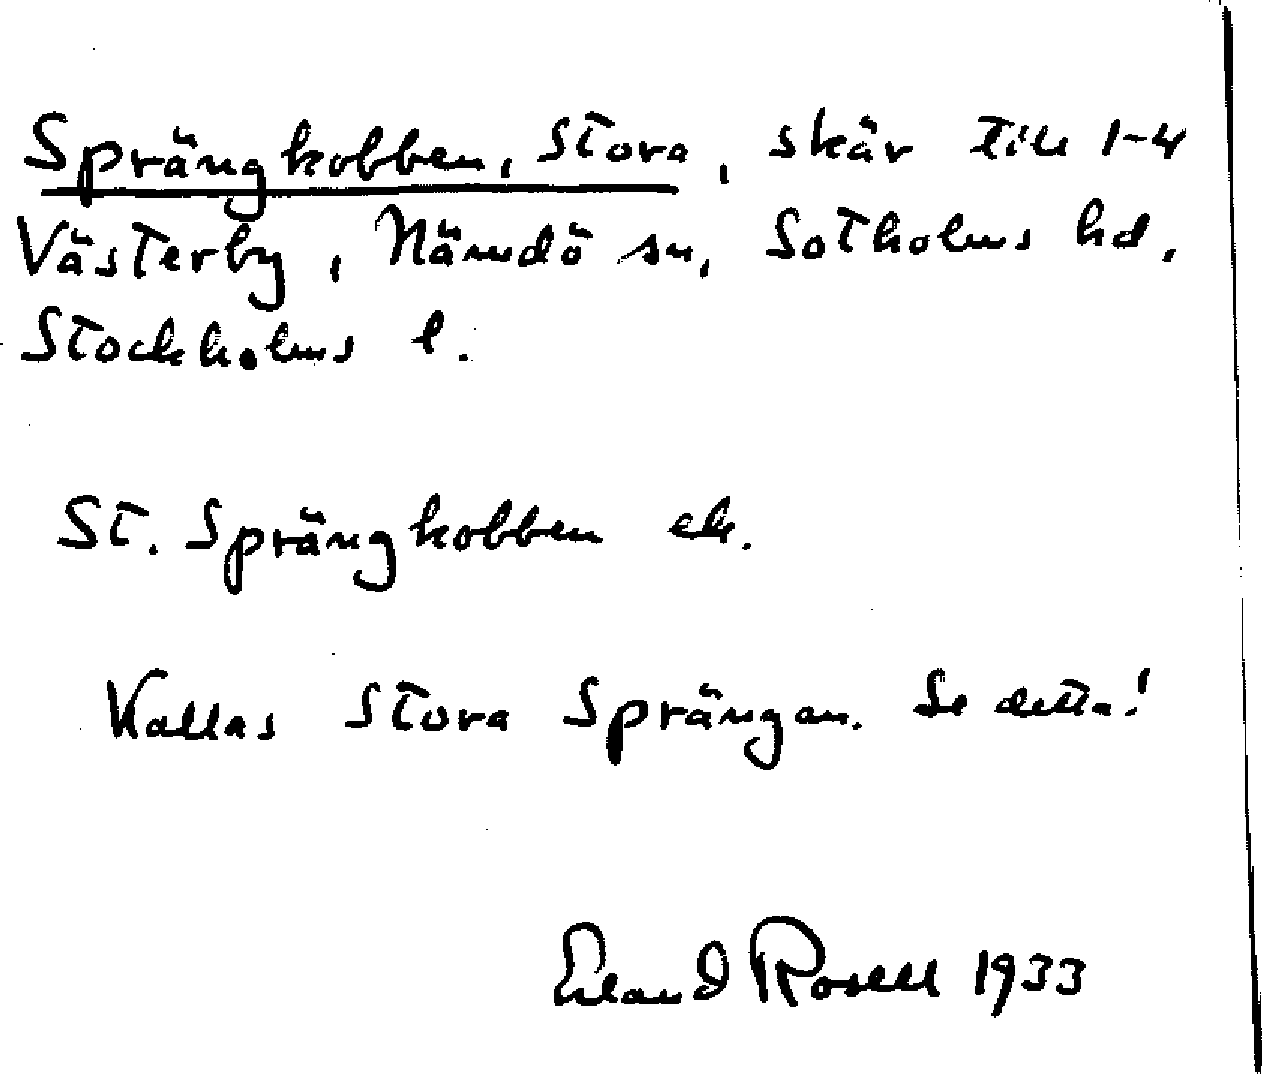 Sprängkobben, Stora, skär till 1-4
Västerby, Nämdö sn, Sotholms hd,
Stockholms l.
St. Sprängkobben ek.
Kallas Stora Sprängan. Se detta!
Erland Rosell 1933